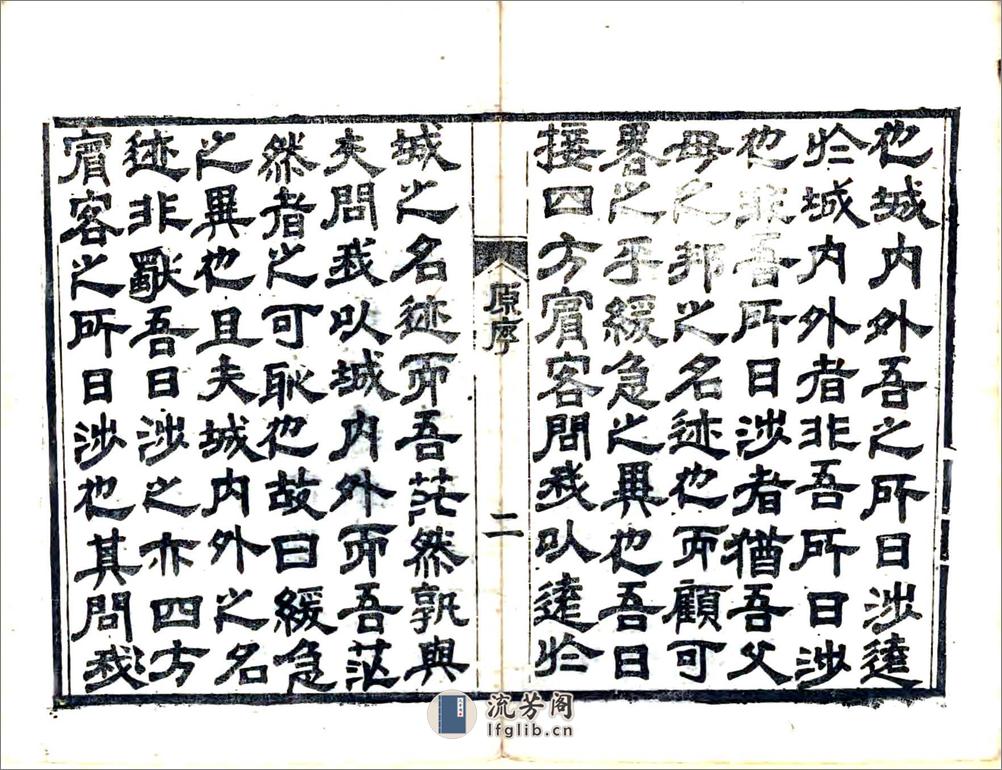 也城内外吾之所日涉遠
於城内外者非吾所日涉
也雖吾所日涉者猶吾父
母之邦之名迹也而顧可
畧之乎緩急之異也吾日
接四方賓客問我以遠於
原序
二
城之名迹而吾茫然孰與
夫問我以城内外而吾茫
然者之可恥也故曰緩急
之異也且夫城内外之名
迹非獸吾日涉之亦四方
賓客之所日涉也其問我
流芳阁
lfglib.cn